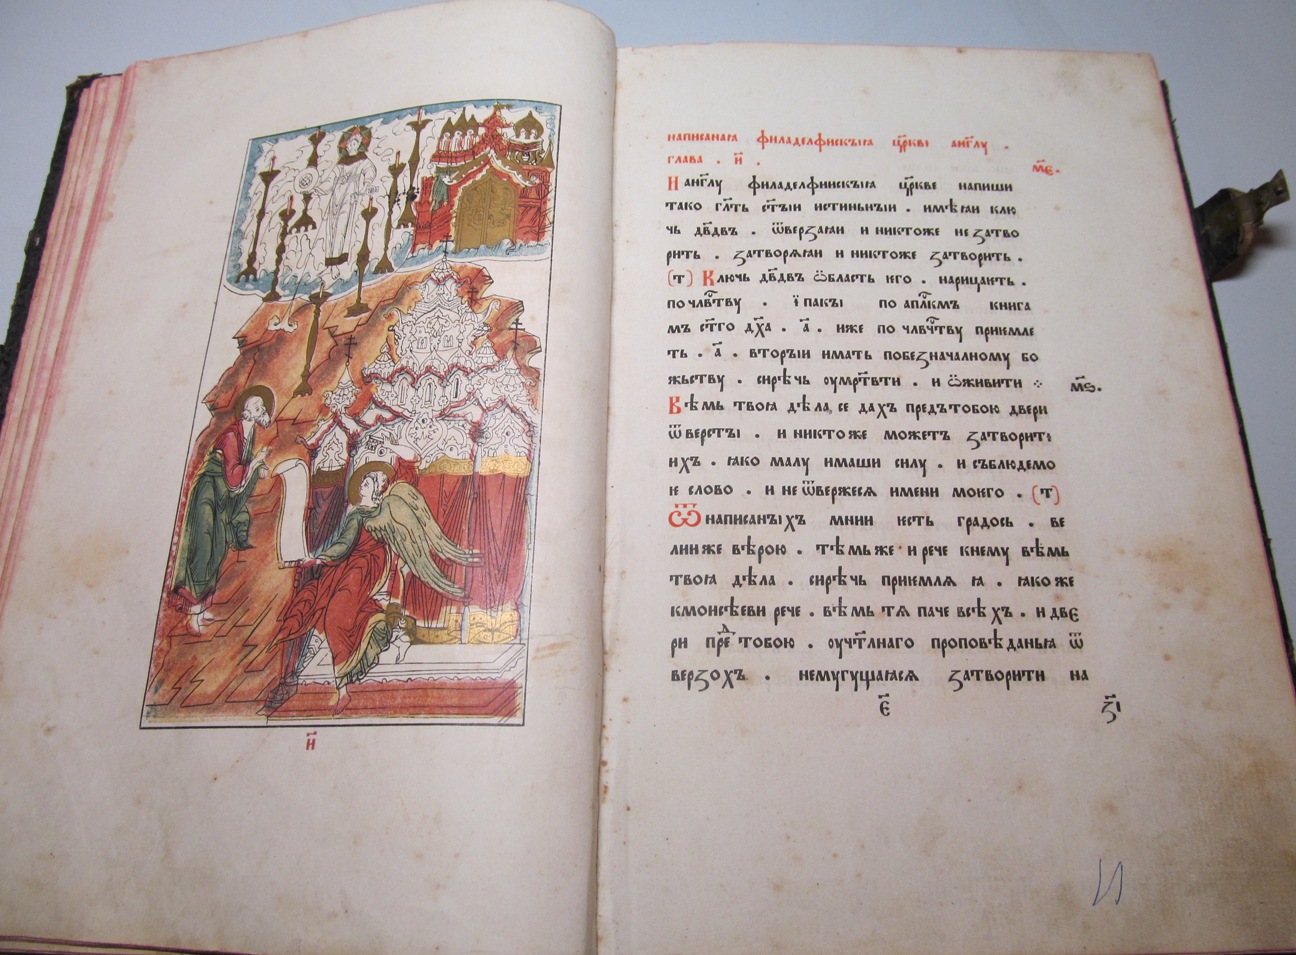 н҃
написанаꙗ филаделфискыꙗ цр҃кві анг҃лу .
глава . н҃ .
м҃е.
И анг҃лу филаделфиискыꙗ цр҃кве напиши
тако гл҃ть ст҃ыи истиньныи . имѣꙗи клю
чь дв҃двъ . ѿверзаꙗи и никтоже не затво
рить . затворѧꙗи и никтоже затворить .
(т) Ключь дв҃двъ ѡбласть ѥго . нарицаѥть .
по члв҃тву . ї пакы по апл҃кмъ книга
мъ ст҃го дх҃а . а҃ . иже по члвч҃тву приѥмле
ть . а҃ . вторыи имать побезначалному бо
жьству . сирѣчь оумр҃твти . и ѡживити ⁘
м҃ѕ.
Вѣмь твоꙗ дѣла, се дахъ предътобою двери
ѿверсты . и никтоже можетъ затворити
ихъ . ꙗко малу имаши силу . и съблюдемо
ѥ слово . и не ѿвержесѧ имени моѥго . (т)
Ѿ написаныхъ мнии ѥсть градось . ве
лии же вѣрою . тѣмьже и рече кнему вѣмь
твоꙗ дѣла . сирѣчь приѥмлѧ ꙗ . ꙗкоже
кмоисѣеви рече . вѣмь тѧ паче всѣхъ . и две
ри прⷣе тобою . оучт҃лнаго проповѣданьꙗ ѿ
верзохъ . немугущаꙗсѧ затворити на
е҃
з҃і